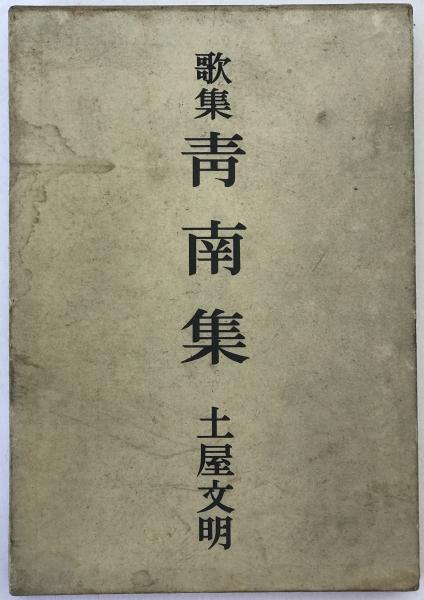 歌集 靑南集 土屋文明